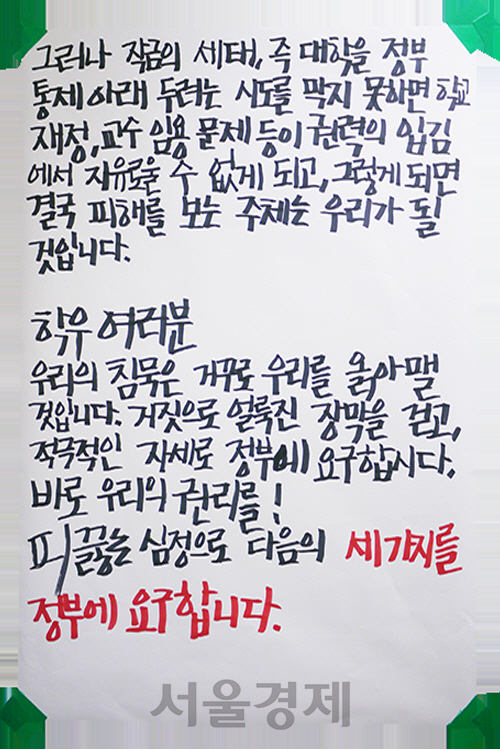 그러나 작금의 세태, 즉 대학을 정부
통제 아래 두려는 시도를 막지 못하면 학교
재정, 교수 임용 문제 등이 권력의 입김
에서 자유로울 수 없게 되고, 그렇게 되면
결국 피해를 보는 주체는 우리가 될
것입니다.
학우 여러분
우리의 침묵은 거꾸로 우리를 옭아맬
것입니다. 거짓으로 얼룩진 장막을 걷고,
적극적인 자세로 정부에 요구합시다.
바로 우리의 권리를!
피 끓는 심정으로 다음의 세 가지를
정부에 요구합니다.
서울경제